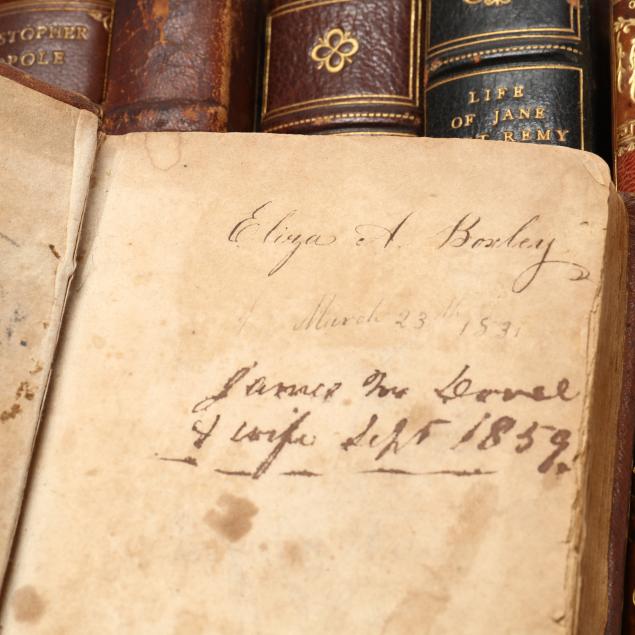 STOPHER
POLE
LIFE
OF JANE
T REMY
Eliza A. Boxley
March 23th 1831
James M Dovel
& wife Sept 1859.